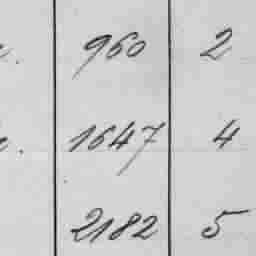 960 2
1647 4
2182 5